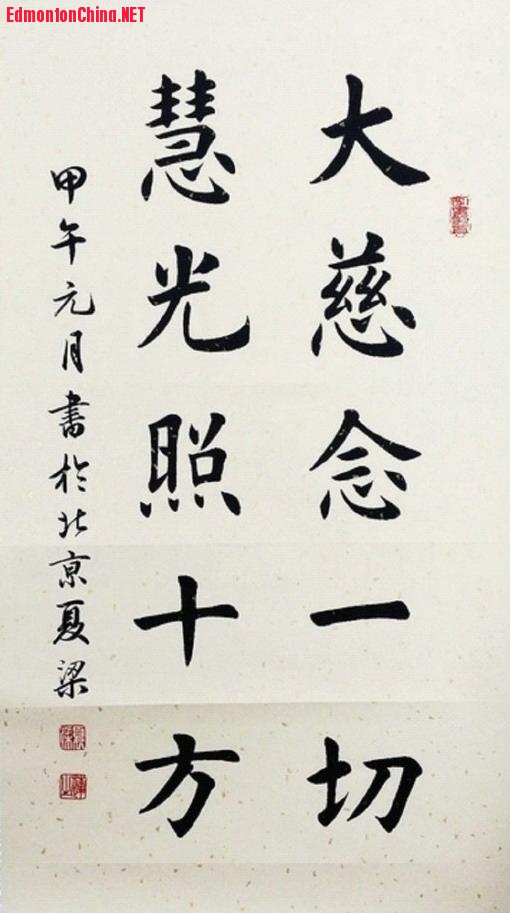 EdmontonChina.NET
大慈念一切
慧光照十方
甲午元月書於北京夏梁